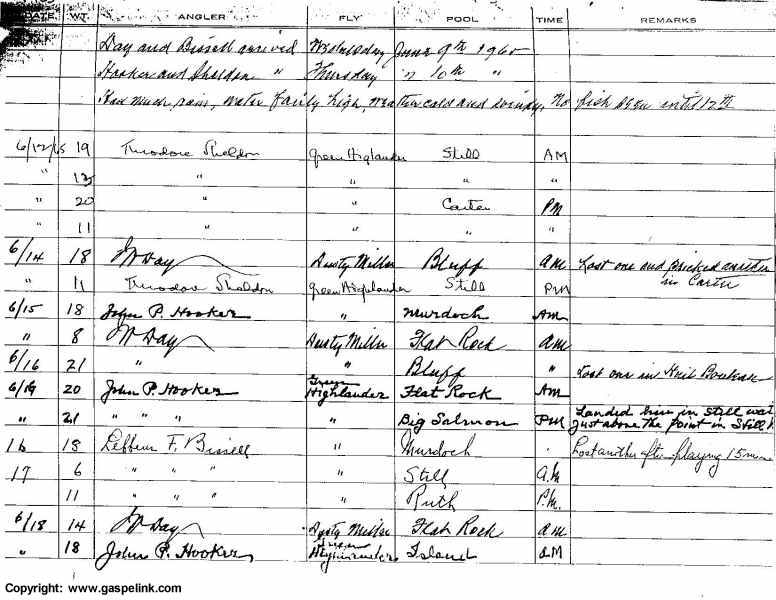 DATE WT. ANGLER FLY POOL TIME REMARKS
Day and Bissell arrived Wednesday June 9th 1965
Hooker and Sheldon " Thursday " 10th "
Had much rain, water fairly high, weather cold and windy, No fish seen until 12th
6/12/65 19 Theodore Sheldon Green Highlander Still AM
" 13 " " " "
" 20 " Carter PM
" 11 " " "
6/14 18 Day Dusty Miller Bluff am Lost one and pricked another
in Carter
" 11 Theodore Sheldon Green Highlander Still PM
6/15 18 John P. Hooker " Murdoch Am
" 8 Day Dusty Miller Flat Rock am
6/16 21 " " Bluff " Lost one in
6/19 20 John P. Hooker Green Highlander Flat Rock Am
" 21 " " " " Big Salmon PM Landed him in Still
just above the point in Still
16 18 F. Bissell " Murdoch Lost another after playing 15
17 6 " " " " Still A.M
11 " " " " Ruth P.M.
6/18 14 Day Dusty Miller Flat Rock am
" 18 John P. Hooker Green Highlander Island AM
Copyright: www.gaspelink.com